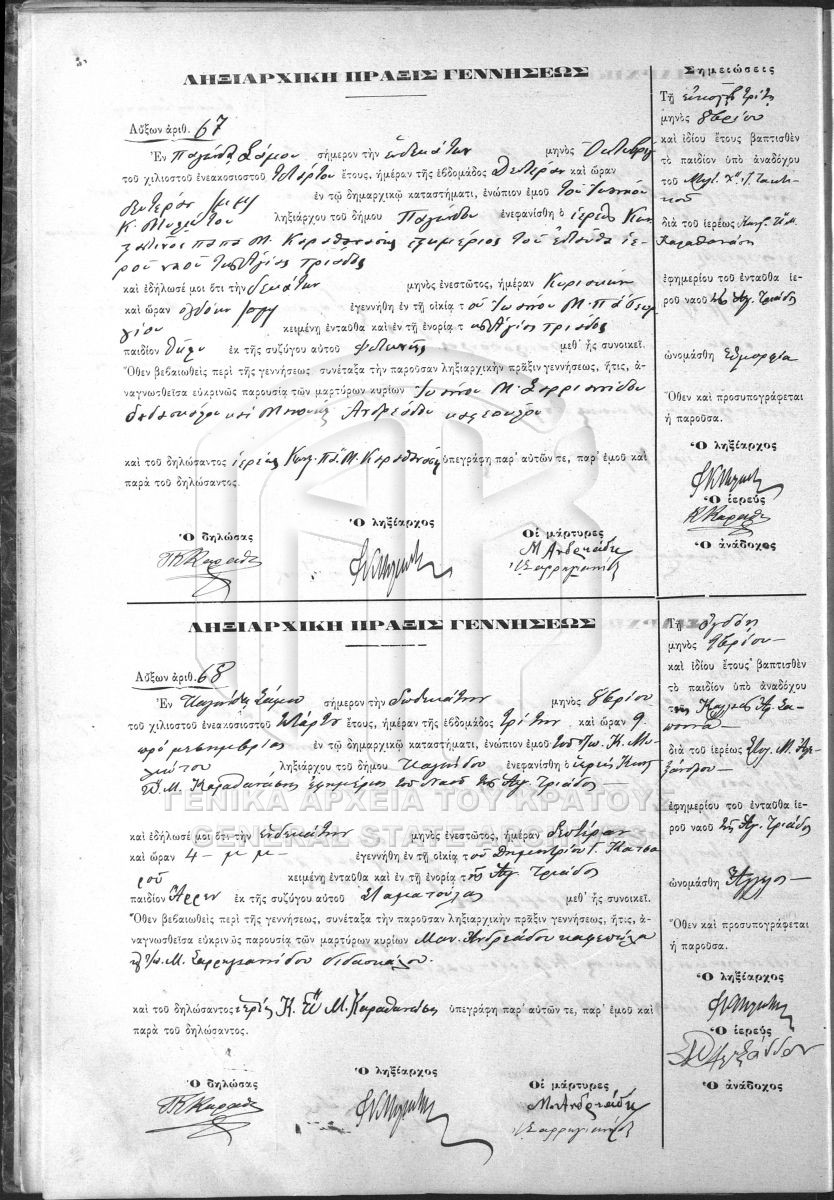 ΛΗΞΙΑΡΧΙΚΗ ΠΡΑΞΙΣ ΓΕΝΝΗΣΕΩΣ
Αὔξων ἀριθ. 67
Ἐν Παγώνδᾳ Σάμου σήμερον τὴν ἑνδεκάτην μηνὸς
τοῦ χιλιοστοῦ ἐνεακοσιοστοῦ τετάρτου ἔτους, ἡμέραν τῆς ἑβδομάδος Δευτέραν καὶ ὥραν
δευτέραν μμ ἐν τῷ δημαρχικῷ καταστήματι, ἐνώπιον ἐμοῦ τοῦ Ἰωάννου
Κ. ληξιάρχου τοῦ δήμου Παγώνδου ἐνεφανίσθη ὁ ἱερεὺς
παπα Μ. Καραθανάσης ἐφημέριος τοῦ ἐνταῦθα ἱε-
ροῦ ναοῦ τῆς Ἁγίας Τριάδος
καὶ ἐδήλωσέ μοι ὅτι τὴν δεκάτην μηνὸς ἐνεστῶτος, ἡμέραν Κυριακὴν
καὶ ὥραν ὀγδόην ἐγεννήθη ἐν τῇ οἰκίᾳ τοῦ Ἰωάννου Μ.
κειμένῃ ἐνταῦθα καὶ ἐν τῇ ἐνορίᾳ τῆς Ἁγίας Τριάδος
παιδίον θῆλυ ἐκ τῆς συζύγου αὐτοῦ μεθ' ἧς συνοικεῖ.
Ὅθεν βεβαιωθεὶς περὶ τῆς γεννήσεως, συνέταξα τὴν παροῦσαν ληξιαρχικὴν πρᾶξιν γεννήσεως, ἥτις, ἀ-
ναγνωσθεῖσα εὐκρινῶς παρουσίᾳ τῶν μαρτύρων κυρίων Ἰωάννου Μ.
διδασκάλου καὶ Ἀνδρεάδου
καὶ τοῦ δηλώσαντος ἱερέως Κων. Πα Μ. Καραθανάση ὑπεγράφη παρ' αὐτῶν τε, παρ' ἐμοῦ καὶ
παρὰ τοῦ δηλώσαντος.
Ὁ δηλώσας Ὁ ληξίαρχος Οἱ μάρτυρες
Μ Ανδρεάδης
Σημειώσεις
Τῇ εἰκοστῇ τρίτῃ
μηνὸς 8βρίου
καὶ ἰδίου ἔτους βαπτισθὲν
τὸ παιδίον ὑπὸ ἀναδόχου
τοῦ
διὰ τοῦ ἱερέως Κων. Π. Μ.
Καραθανάση
ἐφημερίου τοῦ ἐνταῦθα ἱε-
ροῦ ναοῦ τῆς Ἁγ. Τριάδος
ὠνομάσθη Εὐμορφία
Ὅθεν καὶ προσυπογράφεται
ἡ παροῦσα.
Ὁ ληξίαρχος
Ὁ ἱερεὺς
Ὁ ἀνάδοχος
ΛΗΞΙΑΡΧΙΚΗ ΠΡΑΞΙΣ ΓΕΝΝΗΣΕΩΣ
Αὔξων ἀριθ. 68
Ἐν Παγώνδᾳ Σάμου σήμερον τὴν δωδεκάτην μηνὸς 8βρίου
τοῦ χιλιοστοῦ ἐνεακοσιοστοῦ τετάρτου ἔτους, ἡμέραν τῆς ἑβδομάδος Τρίτην καὶ ὥραν 9
πρὸ μεσημβρίας ἐν τῷ δημαρχικῷ καταστήματι, ἐνώπιον ἐμοῦ τοῦ Ἰω. Κ.
ληξιάρχου τοῦ δήμου Παγώνδου ἐνεφανίσθη ὁ ἱερεὺς Κων.
Π. Μ. Καραθανάσης ἐφημέριος τοῦ Ναοῦ τῆς Ἁγ. Τριάδος
καὶ ἐδήλωσέ μοι ὅτι τὴν ἑνδεκάτην μηνὸς ἐνεστῶτος, ἡμέραν Δευτέραν
καὶ ὥραν 4 - μ μ - ἐγεννήθη ἐν τῇ οἰκίᾳ τοῦ Δημητρίου Γ. Κατσα
ροῦ κειμένῃ ἐνταῦθα καὶ ἐν τῇ ἐνορίᾳ τῆς Ἁγ. Τριάδος
παιδίον Ἄρρεν ἐκ τῆς συζύγου αὐτοῦ Σταματούλας μεθ' ἧς συνοικεῖ.
Ὅθεν βεβαιωθεὶς περὶ τῆς γεννήσεως, συνέταξα τὴν παροῦσαν ληξιαρχικὴν πρᾶξιν γεννήσεως, ἥτις, ἀ-
ναγνωσθεῖσα εὐκρινῶς παρουσίᾳ τῶν μαρτύρων κυρίων Μαν. Ἀνδρεάδου καφεπώλα
Ἰω. Μ. διδασκάλου.
καὶ τοῦ δηλώσαντος ἱερέως Κ. Π. Μ. Καραθανάση ὑπεγράφη παρ' αὐτῶν τε, παρ' ἐμοῦ καὶ
παρὰ τοῦ δηλώσαντος.
Ὁ δηλώσας Ὁ ληξίαρχος Οἱ μάρτυρες
Μ Ανδρεάδης
Τῇ ὀγδόῃ
μηνὸς 9βρίου
καὶ ἰδίου ἔτους βαπτισθὲν
τὸ παιδίον ὑπὸ ἀναδόχου
τῆς
διὰ τοῦ ἱερέως Μ. Ἀλε
ξάνδρου
ἐφημερίου τοῦ ἐνταῦθα ἱε-
ροῦ ναοῦ τῆς Ἁγ. Τριάδος
ὠνομάσθη Ἄγγελος
Ὅθεν καὶ προσυπογράφεται
ἡ παροῦσα.
Ὁ ληξίαρχος
Ὁ ἱερεὺς
Ὁ ἀνάδοχος
ΓΕΝΙΚΑ ΑΡΧΕΙΑ ΤΟΥ ΚΡΑΤΟΥΣ
GENERAL STATE ARCHIVES